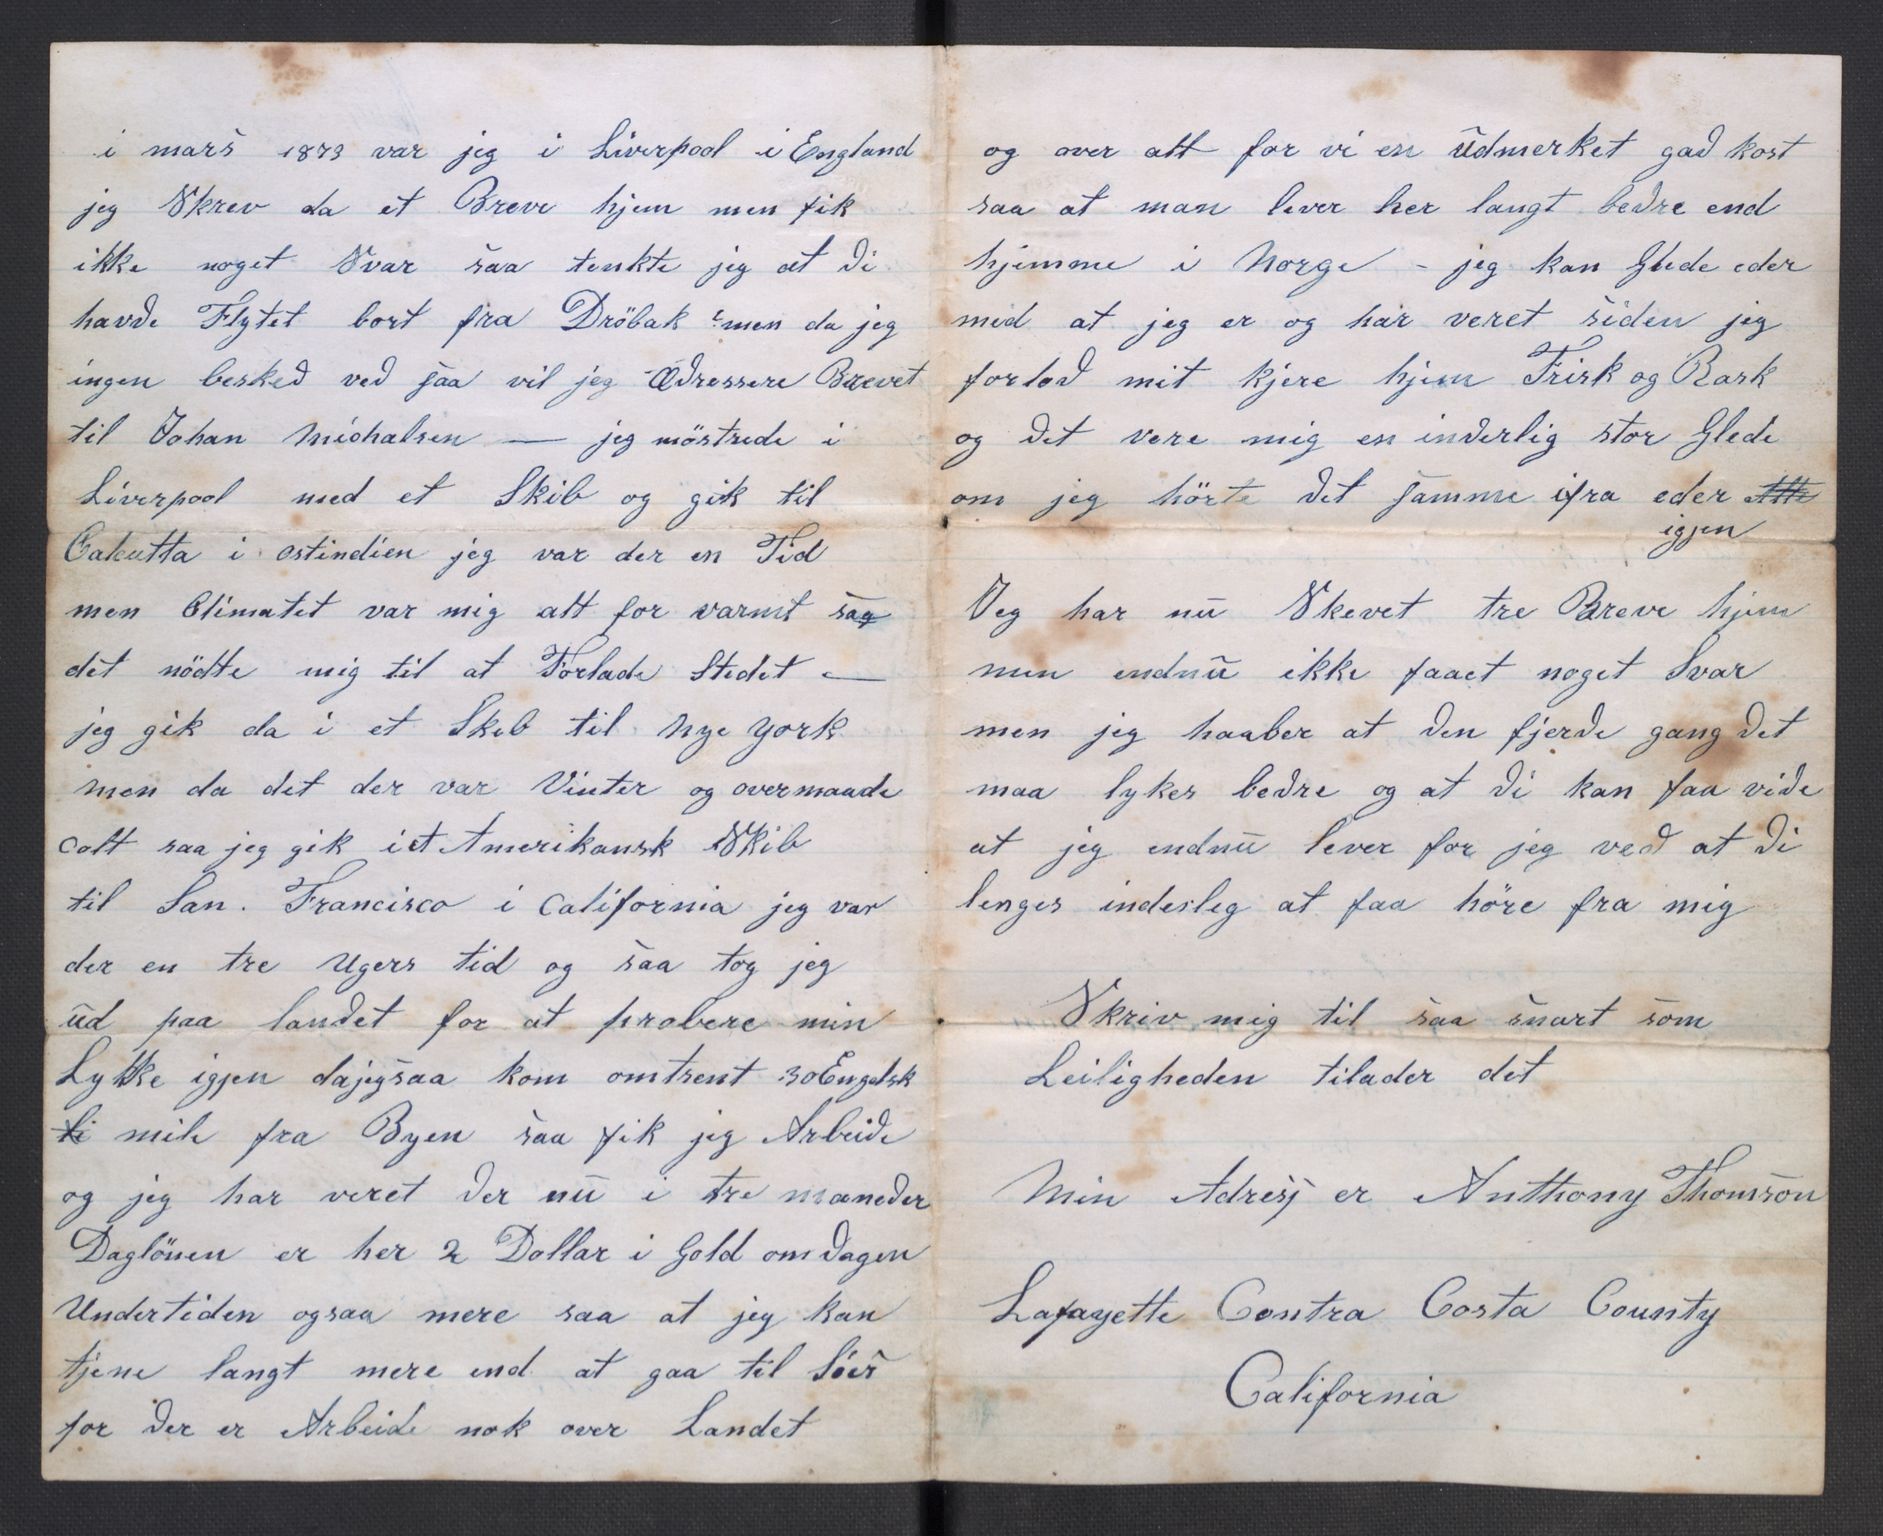 i mars 1873 var jeg i Liverpool i England
jeg Skrev da et Breve hjem men fik
ikke noget Svar saa tenkte jeg at di
havde Flytet bort fra Dröbak men da jeg
ingen besked ved saa vil jeg Adressere Brevet
til Johan Michalsen — jeg mönstrede i
Liverpool med et Skib og gik til
Calcutta i ostindien jeg var der en Tid
men Climatet var mig alt for varmt saa
det nödte mig til at Forlade Stedet —
jeg gik da i et Skeb til Nye York
men da det der var Vinter og overmaade
colt saa jeg gik i et Amerikansk Skib
til San. Francisco i California jeg var
der en tre Ugers tid og saa tog jeg
ud paa landet for at probere min
Lykke igjen da jeg saa kom omtrent 30 Engelsk
mile fra Byen saa fik jeg Arbeide
og jeg har veret der nu i tre maneder
Daglönen er her 2 Dollar i Gold om dagen
Undertiden ogsaa mere saa at jeg kan
tjene langt mere end at gaa til Söes
for der er Arbeide nok over Landet
og over alt for vi en udmerket god kost
saa at man lever her langt bedre end
hjemme i Norge - jeg kan Glede eder
med at jeg er og har veret siden jeg
forlod mit kjere hjem Frisk og Rask
og det vere mig en inderlig stor Glede
om jeg hörte det samme ifra eder
igjen
Jeg har nu Skevet tre Breve hjem
men endnu ikke faaet noget Svar
men jeg haaber at den fjerde gang det
maa lykes bedre og at di kan faa vide
at jeg endnu lever for jeg ved at di
lenges indesleg at faa höre fra mig
Skriv mig til saa snart som
Leiligheden tilader det
Min Adress er Anthony Thomson
Lafayette Contra Costa County
California